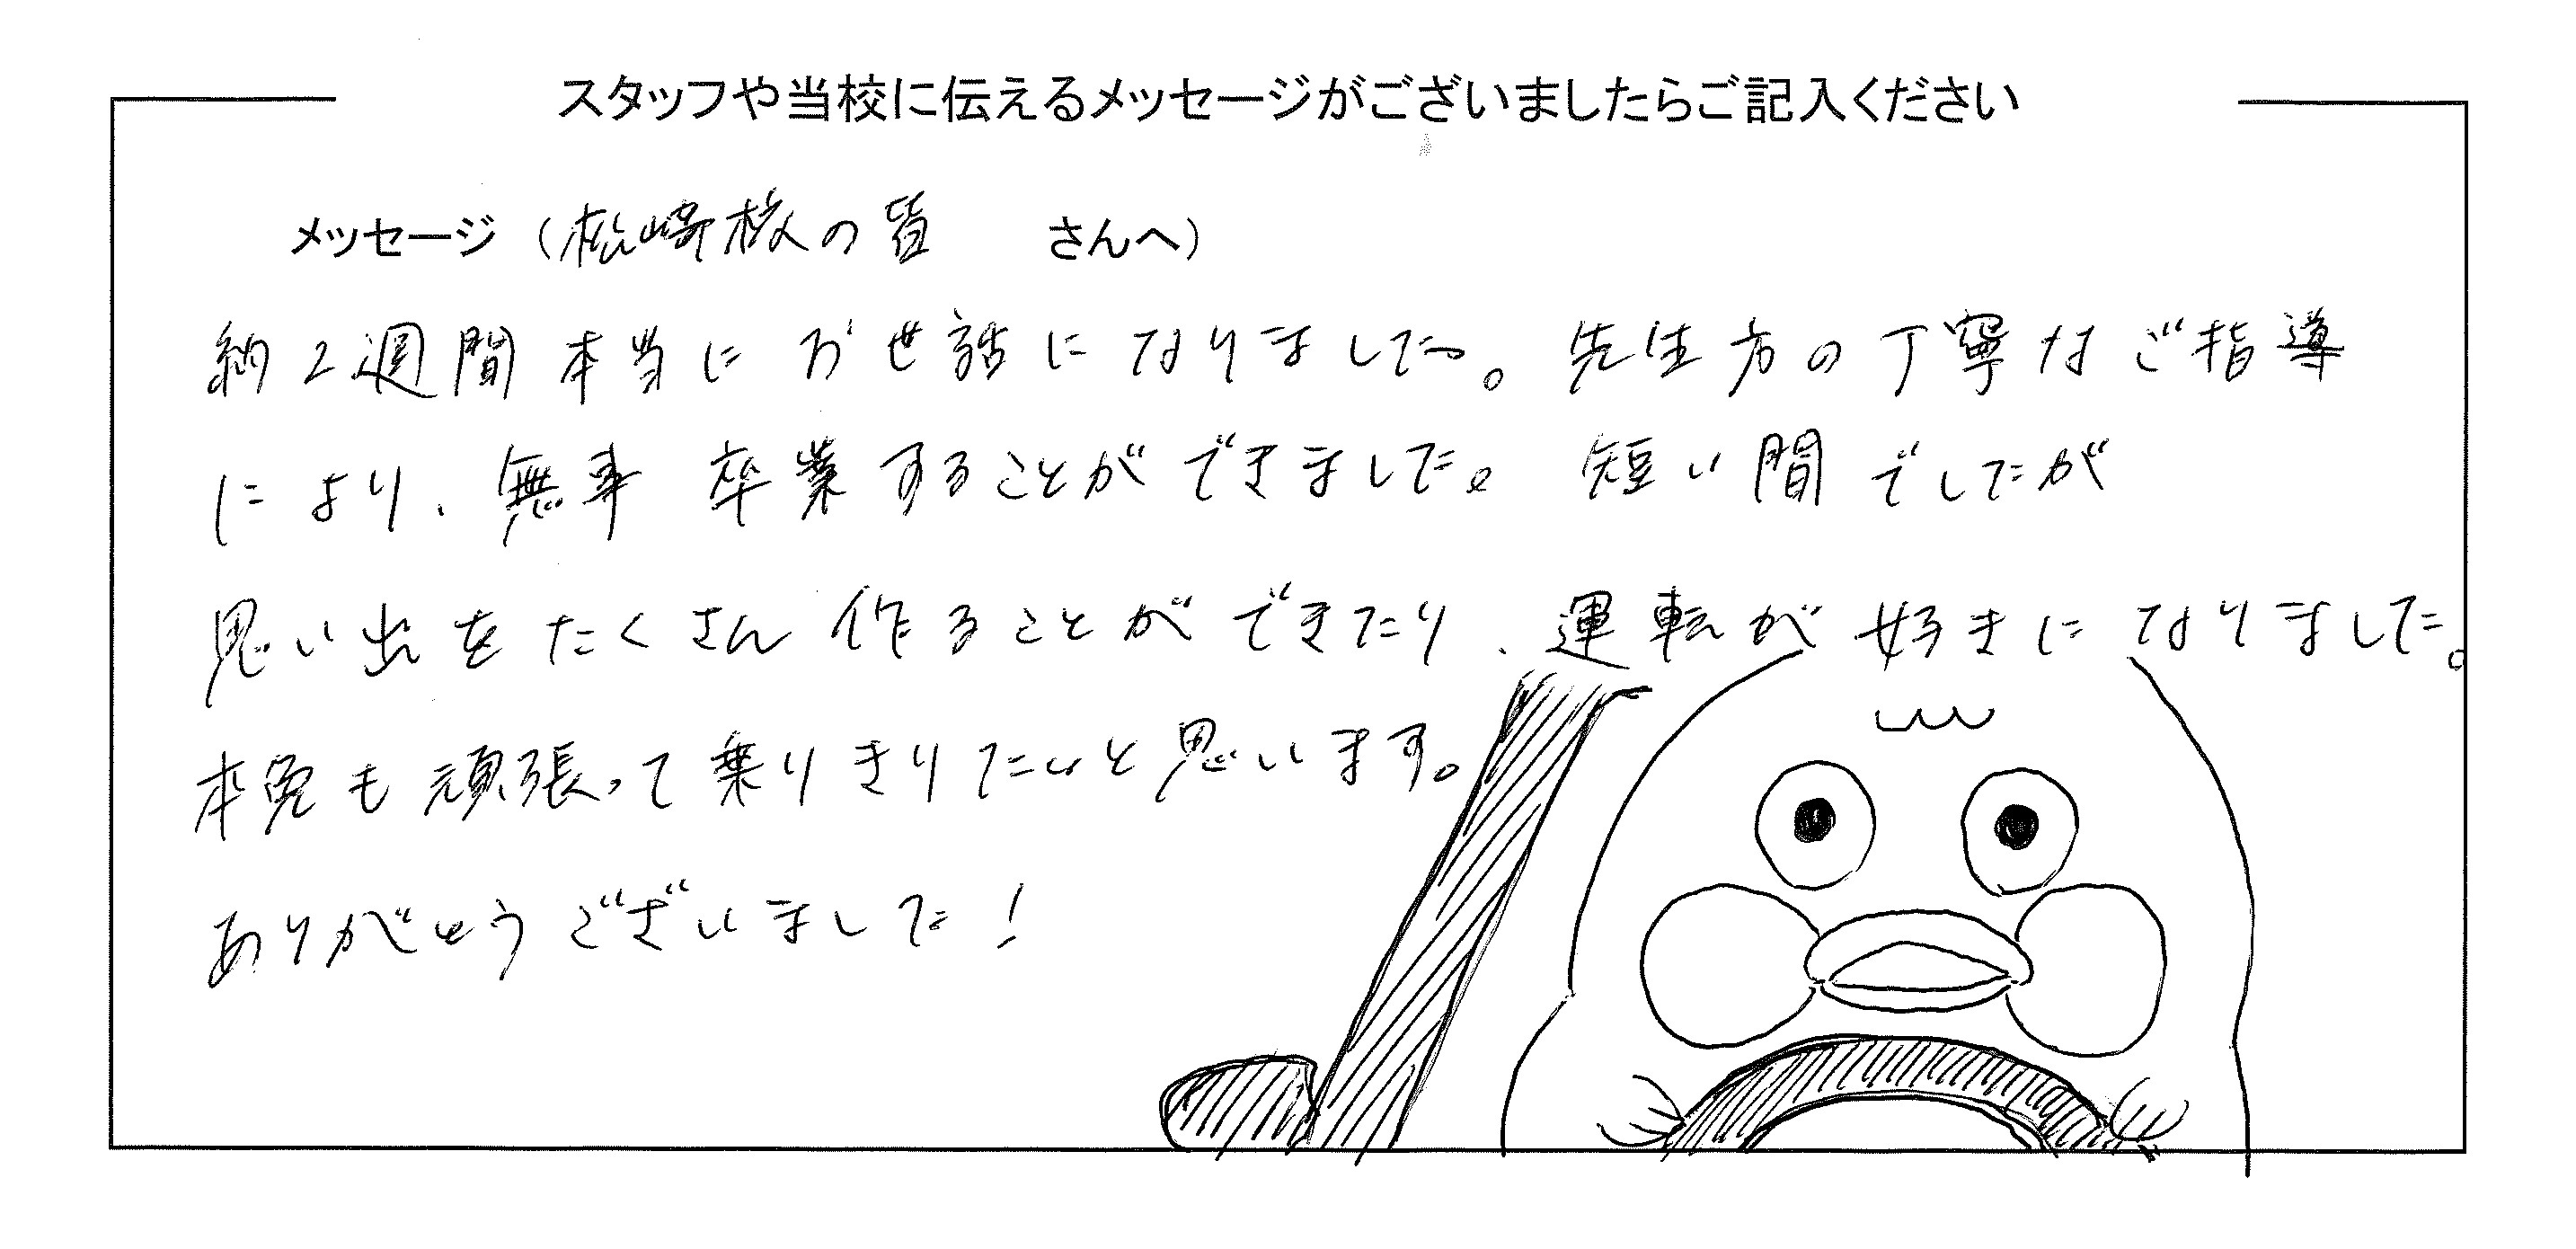 スタッフや当校に伝えるメッセージがございましたらご記入ください
メッセージ（松崎校の皆 さんへ）
約2週間本当にお世話になりました。先生方の丁寧なご指導
により、無事 卒業することができました。短い間でしたが
思い出をたくさん作ることができたり、運転が好きになりました。
本免も頑張って乗りきりたいと思います。
ありがとうございました！